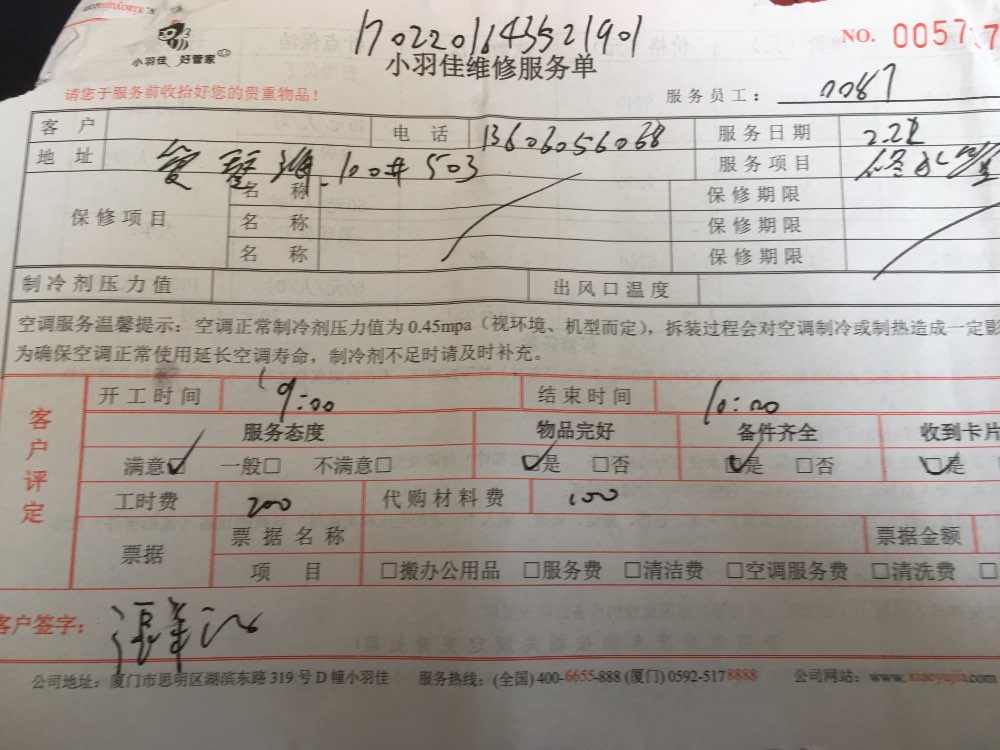 1702201643521901
NO. 00577
小羽佳 好管家
小羽佳维修服务单
请您于服务前收拾好您的贵重物品！
服务员工： 0087
客户 电话 13606056068 服务日期 2.22
地址 100# 503 服务项目
保修项目 名称 保修期限
名称 保修期限
名称 保修期限
制冷剂压力值 出风口温度
空调服务温馨提示：空调正常制冷剂压力值为0.45mpa（视环境、机型而定），拆装过程会对空调制冷或制热造成一定影
为确保空调正常使用延长空调寿命，制冷剂不足时请及时补充。
客户评定
开工时间 9:00 结束时间 10:00
服务态度 物品完好 备件齐全 收到卡片
满意☑ 一般□ 不满意□ ☑是 □否 ☑是 □否 ☑是
工时费 200 代购材料费 100
票据 票据名称 票据金额
项目 □搬办公用品 □服务费 □清洁费 □空调服务费 □清洗费 □
客户签字：
公司地址：厦门市思明区湖滨东路319号D幢小羽佳 服务热线：(全国) 400-6655-888 (厦门) 0592-5178888 公司网站：www.xiaoyujia.com